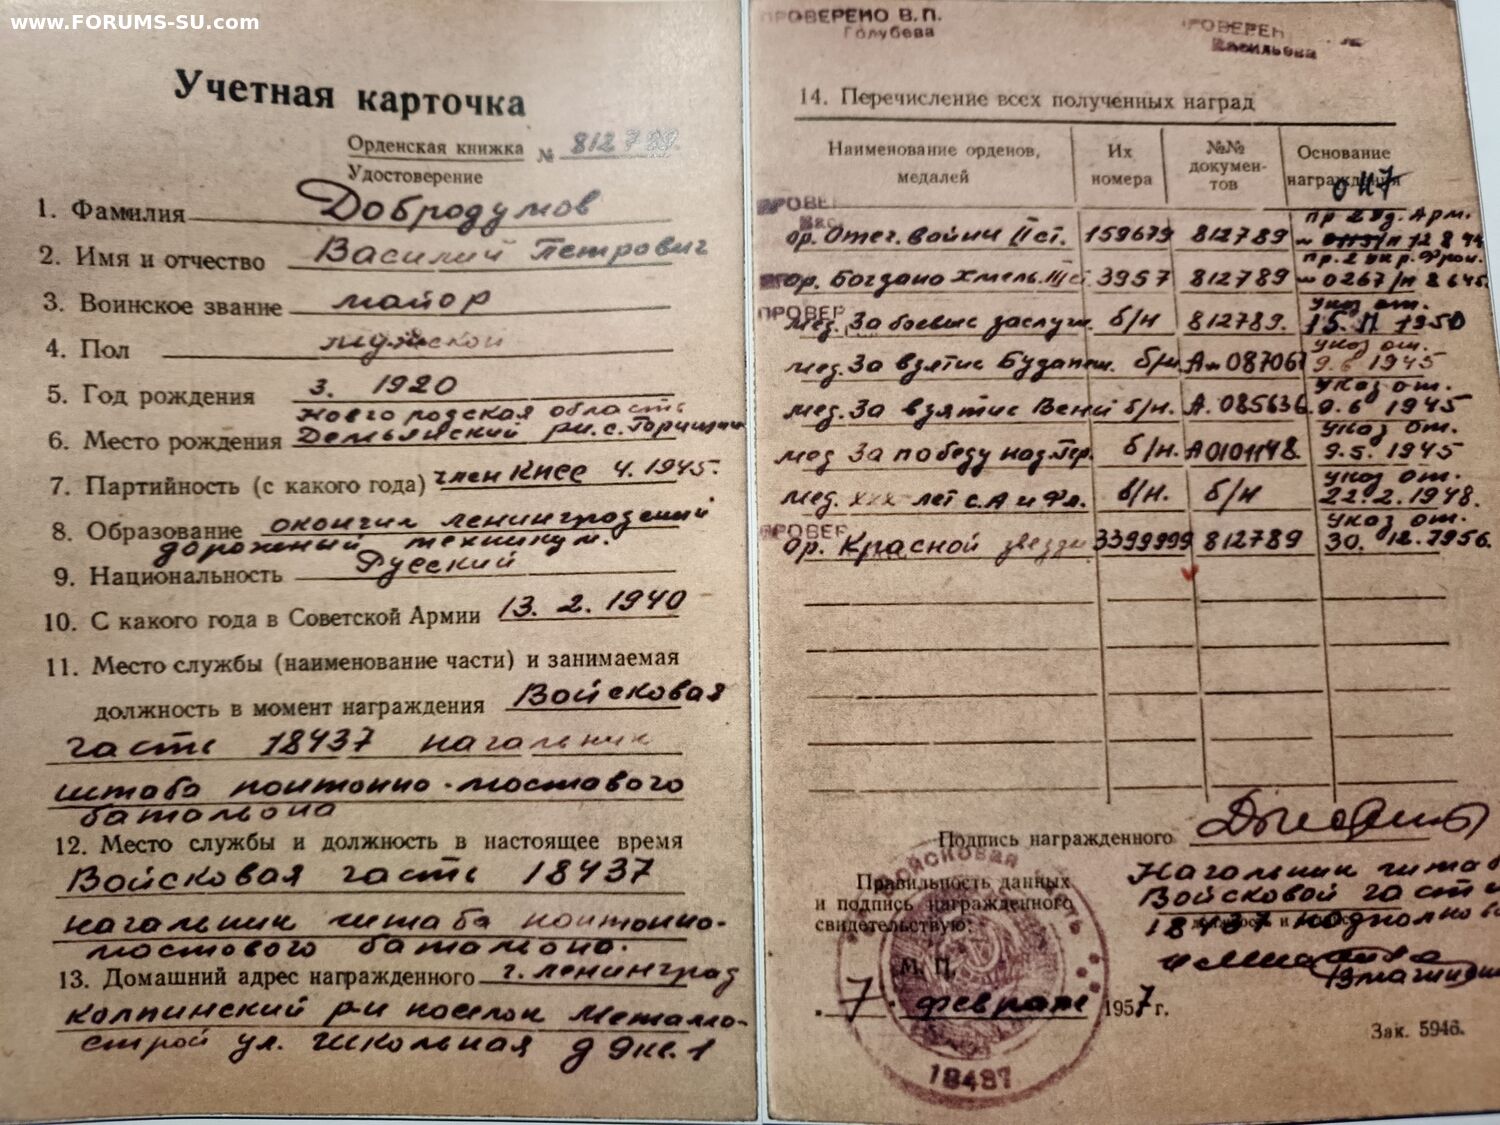 www.FORUMS-SU.com
Учетная карточка
Орденская книжка № 812789.
Удостоверение
1. Фамилия Добродумов
2. Имя и отчество Василий Петрович
3. Воинское звание майор
4. Пол мужской
5. Год рождения 3. 1920
Новгородская область
6. Место рождения Демьянский р-н. с.
7. Партийность (с какого года) член КПСС 4. 1945.
8. Образование окончил ленинградский
дорожный техникум.
9. Национальность Русский
10. С какого года в Советской Армии 13. 2. 1940
11. Место службы (наименование части) и занимаемая
должность в момент награждения Войсковая
часть 18437 начальник
штаба понтонно-мостового
батальона
12. Место службы и должность в настоящее время
Войсковая часть 18437
начальник штаба понтонно-
мостового батальона.
13. Домашний адрес награжденного г. Ленинград
колпинский р-н поселок Металло-
строй ул. Школьная д 9 кв. 1
ПРОВЕРЕНО В.П.
Голубева
ПРОВЕРЕН
Васильева
14. Перечисление всех полученных наград
Наименование орденов, медалей
Их номера
№№ докумен-тов
Основание награждения
ПРОВЕ
ор. Отеч. войны II ст. 159679 812789 пр 2 Уд. Арм. 12 8 44
ор. Богдана Хмель. III ст 3957 812789 пр. 2 Укр. Фрон. № 0267/н 2 6 45
ПРОВЕР
мед. За боевые заслуги б/н 812789. Указ от. 15. 11 1950
мед. За взятие Будапеш. б/н. А № 087067 указ от. 9. 6 1945
мед. За взятие Вены б/н. А. 085636. указ от. 9. 6 1945
мед За победу над Гер. б/н. А 0101148. указ от. 9. 5. 1945
мед. XXX лет С.А и Фл. б/н. б/н указ от. 22. 2. 1948.
ПРОВЕР
ор. Красной звезды 3399999 812789 указ от. 30. 12. 1956.
Подпись награжденного
Правильность данных
и подпись награжденного
свидетельствую:
Начальник штаба
Войсковой части
18437 подполков
М. П.
7. февраля 1957 г.
ВОЙСКОВАЯ ЧАСТЬ
18437
Зак. 5946.